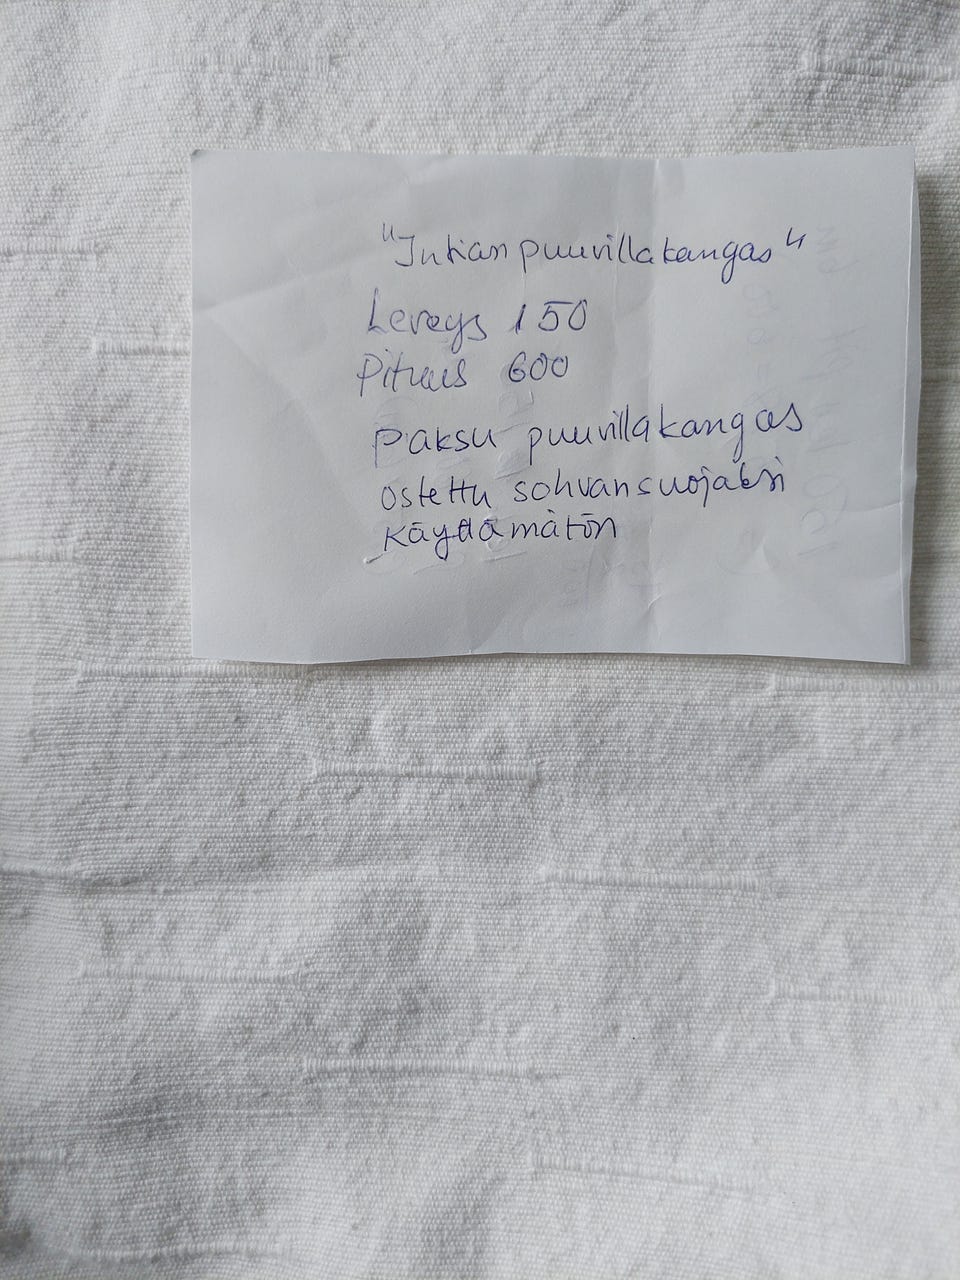 "Intian puuvillakangas"
Leveys 150
Pituus 600
Paksu puuvillakangas
ostettu sohvansuojaksi
Käyttämätön